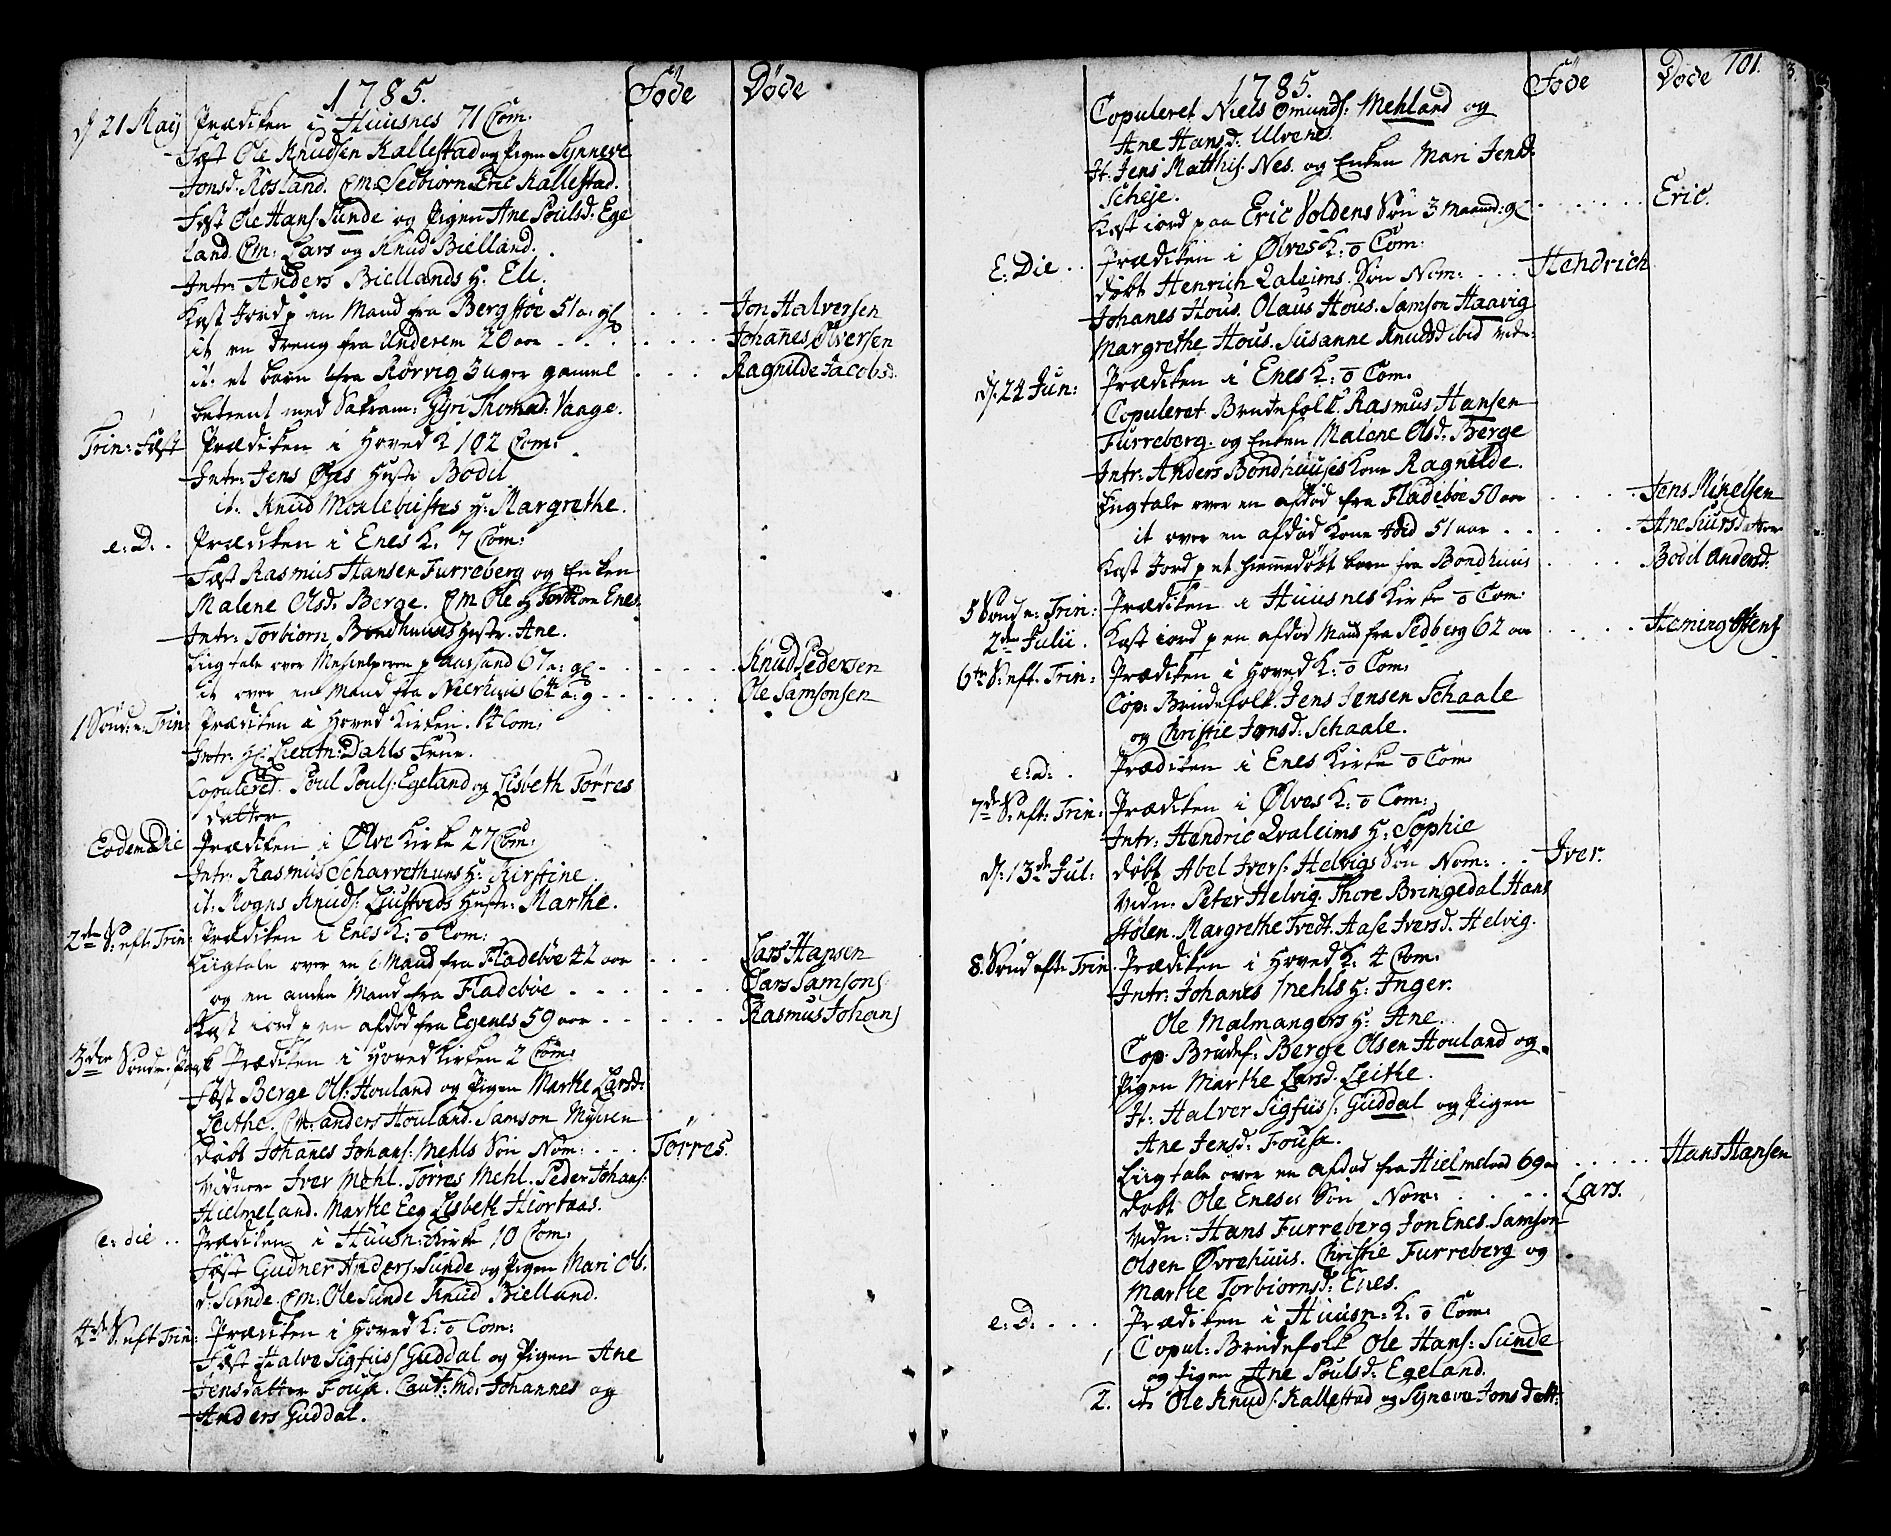 1785. Föde Döde
d 21 May Prædiken i Huusnes 71 Com.
Fæst Ole Knudsen Kallestad og Pigen Synneve
Jonsd: Røsland. Cm: Sedbiorn Eric Kallestad.
Fæst Ole Hans: Sunde og Pigen Ane Poulsd: Ege
land. Cm: Lars og Knud Bielland.
Intr: Anders Biellands H. Eli.
Kast Jord p en Mand fra Bergstøe 51 a: gl . . . . Jon Halversen
it en Dreng fra Underem 20 aar . . . . Johanes Øversen
it: et barn fra Rørvig 3 uger gamel . . . Ragnilde Jacobsd.
betient med Sakram: Gyri Thomasd: Vaage.
Trin: Fæst Prædiken i Hoved K 102 Com:
Intr: Jens Øyes Hustr Bodil
it. Knud Moelebustes H: Margrethe.
e: d: . . Prædiken i Enes K. 7 Com:
Fæst Rasmus Hansen Furreberg og Enken
Malene Olsd: Berge. Cm Ole og Torbiorn Enes.
Intr: Torbiorn Bondhuuses Hustr. Ane.
Liigtale over p aarsland 67 a: gl . . . . Knud Pedersen
it over en Mand fra Neerhuus 64 a: g . . . Ole Samsonsen
1 Sönd: n: Trin: Prædiken i Hoved Kirken. 14 Com:
Intr: Hl Lieutn: Dahls Frue.
Copulered. Poul Pouls: Egeland og Lisbeth Törres
datter
Eodem Die Prædiken i Ølve Kirke 27 Com:
Intr: Rasmus Scharvethuns H: Kirstine.
it: Rogns Knuds: Liustveds Hustr: Marthe.
2den S: eft: Trin: Prædiken i Enes K: 0 Com:
Liigtale over en Mand fra Fladebøe 42 aar . . . Lars Hansen
og en anden Mand fra Fladebøe . . . . Lars Samsons:
Kast iord p en afdød fra Egenes 59 aar . . . . Rasmus Johans
3die Söndn: Prædiken i Hoved Kirken 2 Com:
Fæst Berge Ols: Houland og Pigen Marthe Larsd:
Leithe. Cm: anders Houland. Samson Myhren
döbt Johannes Johans: Mehls Sön Nom: . . . Törres.
Vidner Iver Mehl. Törres Mehl. Peder Johans:
Hielmeland. Marthe Eeg Lisbeth Hiortaas.
e: die . . Prædiken i Huusn: Kirke 10 Com:
Fæst Gudner Anders: Sunde og Pigen Mari Ols:
d: Sunde. Cm: Ole Sunde Knud Bielland.
4de S: eft Trin: Prædiken i Hoved K: 0 Com:
Fæst Halve Sigfuss Guddal og Pigen Ane
Jensdatter Fousa. Caut: Md: Johannes og
Anders Guddal.
1785. Föde Döde 101.
Copuleret Niels Omunds: Mehland og
Ane Hansd: Ulvenes.
It: Jens Matthis: Nes. og Enken Mari Jensd:
Scheje.
Kast iord paa Eric Voldens Sön 3 maand: gl . . . . . Eric.
E: Die . . Prædiken i Ølves K: 0 Com:
döbt Henrich Qvaleims Sön Nom: . . . Hendrich
Johanes Hous. Olaus Hous. Samson Haavig
Margrethe Hous. Susanne Knudsd ibid vidn:
d: 24 Jun: Prædiken i Enes K: 0 Com:
Copuleret Brudefolk. Rasmus Hansen
Furreberg. og Enken Malene Olsd: Berge
Intr: Anders Bondhuuses kone Ragnilde.
Liigtale over en afdød fra Fladebøe 50 aar . . . . Jens Mikelsen
it over en afdød Kone ibid 51 aar . . . . Ane Siursdatter
Kast Jord p et hiemmedøbt barn fra Bondhuus . . . . Bodil Andersd.
5 Sönd n: Trin: Prædiken i Huusnes Kirke 0 Com:
2den Julii. Kast iord p en afdød Mand fra Sedberg 62 aar . . . . Heming Ostens
6te S: eft: Trin: Prædiken i Hoved K: 0 Com:
Cop: Brudefolk Jens Jensen Schaale
og Christie Jonsd: Schaale.
e: d: . Prædiken i Enes Kirke 0 Com
7de S: eft: Trin: Prædiken i Ølves K: 0 Com:
Intr: Hendric Qvaleims H: Sophie
d: 13de Jul: döbt Abel Ivers: Helvigs Sön Nom: . . Iver.
Vidn: Peter Helvig. Thore Bringedal Hans
Stølen. Margrethe Tvedt. Aase Iversd. Helvig.
8. Sönd eft: Trin. Prædiken i Hoved K: 4 Com:
Intr: Johanes Mehls H: Inger.
Ole Malmangers H: Ane.
Cop: Brudef: Berge Olsen Houland og
Pigen Marthe Larsd. Leithe.
It: Halver Sigfuss: Guddal og Pigen
Ane Jensd: Fousa.
Liigtale over en afdød fra Hielmeland 69 aar . . . . . Hans Hansen
döbt Ole Eneses Sön Nom: . . . . Lars.
Vidn: Hans Furreberg Jon Enes. Samson
Olsen Øvrehuus. Christie Furreberg og
Marthe Torbiornsd: Enes.
e: D: . . . Prædiken i Huusn: K: 0 Com:
1 Copul: Brudefolk Ole Hans: Sunde
og Pigen Ane Poulsd: Egeland.
2. it Ole Knuds: Kallestad og Syneva Jonsdatt: